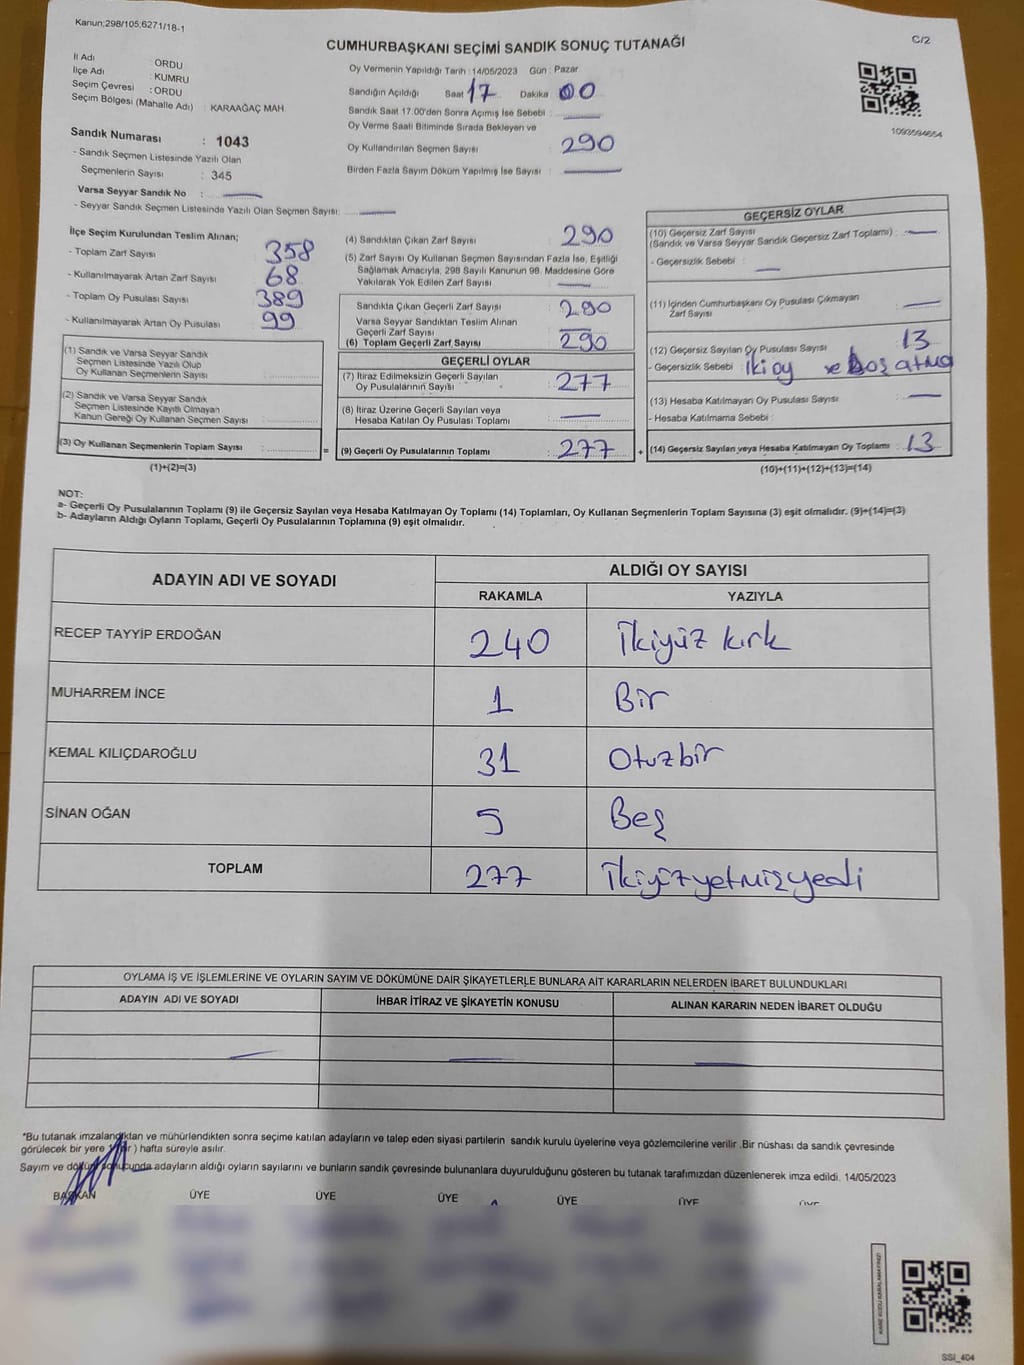 Kanun;298/105;6271/18-1
C/2
CUMHURBAŞKANI SEÇİMİ SANDIK SONUÇ TUTANAĞI
İl Adı ORDU
İlçe Adı : KUMRU
Seçim Çevresi : ORDU
Seçim Bölgesi (Mahalle Adı) : KARAAĞAÇ MAH
Sandık Numarası : 1043
- Sandık Seçmen Listesinde Yazılı Olan
Seçmenlerin Sayısı : 345
Varsa Seyyar Sandık No :
- Seyyar Sandık Seçmen Listesinde Yazılı Olan Seçmen Sayısı:
Oy Vermenin Yapıldığı Tarih : 14/05/2023 Gün : Pazar
Sandığın Açıldığı Saat 17 Dakika 00
Sandık Saat 17.00'den Sonra Açımış İse Sebebi :
Oy Verme Saati Bitiminde Sırada Bekleyen ve
Oy Kullandırılan Seçmen Sayısı : 290
Birden Fazla Sayım Döküm Yapılmış İse Sayısı :
1093594654
İlçe Seçim Kurulundan Teslim Alınan;
- Toplam Zarf Sayısı : 358
- Kullanılmayarak Artan Zarf Sayısı : 68
- Toplam Oy Pusulası Sayısı : 389
- Kullanılmayarak Artan Oy Pusulası : 99
(1) Sandık ve Varsa Seyyar Sandık
Seçmen Listesinde Yazılı Olup
Oy Kullanan Seçmenlerin Sayısı :
(2) Sandık ve Varsa Seyyar Sandık
Seçmen Listesinde Kayıtlı Olmayan
Kanun Gereği Oy Kullanan Seçmen Sayısı :
(3) Oy Kullanan Seçmenlerin Toplam Sayısı :
(1)+(2)=(3)
(4) Sandıktan Çıkan Zarf Sayısı : 290
(5) Zarf Sayısı Oy Kullanan Seçmen Sayısından Fazla İse, Eşitliği
Sağlamak Amacıyla, 298 Sayılı Kanunun 98. Maddesine Göre
Yakılarak Yok Edilen Zarf Sayısı :
Sandıkta Çıkan Geçerli Zarf Sayısı : 290
Varsa Seyyar Sandıktan Teslim Alınan
Geçerli Zarf Sayısı :
(6) Toplam Geçerli Zarf Sayısı : 290
GEÇERLİ OYLAR
(7) İtiraz Edilmeksizin Geçerli Sayılan
Oy Pusulalarının Sayısı : 277
(8) İtiraz Üzerine Geçerli Sayılan veya
Hesaba Katılan Oy Pusulası Toplamı :
= (9) Geçerli Oy Pusulalarının Toplamı : 277 +
GEÇERSİZ OYLAR
(10) Geçersiz Zarf Sayısı
(Sandık ve Varsa Seyyar Sandık Geçersiz Zarf Toplamı) :
- Geçersizlik Sebebi :
(11) İçinden Cumhurbaşkanı Oy Pusulası Çıkmayan
Zarf Sayısı :
(12) Geçersiz Sayılan Oy Pusulası Sayısı : 13
- Geçersizlik Sebebi : İki oy ve boş atma
(13) Hesaba Katılmayan Oy Pusulası Sayısı :
- Hesaba Katılmama Sebebi :
(14) Geçersiz Sayılan veya Hesaba Katılmayan Oy Toplamı : 13
(10)+(11)+(12)+(13)=(14)
NOT:
a- Geçerli Oy Pusulalarının Toplamı (9) ile Geçersiz Sayılan veya Hesaba Katılmayan Oy Toplamı (14) Toplamları, Oy Kullanan Seçmenlerin Toplam Sayısına (3) eşit olmalıdır. (9)+(14)=(3)
b- Adayların Aldığı Oyların Toplamı, Geçerli Oy Pusulalarının Toplamına (9) eşit olmalıdır.
ADAYIN ADI VE SOYADI ALDIĞI OY SAYISI
RAKAMLA YAZIYLA
RECEP TAYYİP ERDOĞAN 240 İkiyüz kırk
MUHARREM İNCE 1 Bir
KEMAL KILIÇDAROĞLU 31 Otuzbir
SİNAN OĞAN 5 Beş
TOPLAM 277 İkiyüzyetmişyedi
OYLAMA İŞ VE İŞLEMLERİNE VE OYLARIN SAYIM VE DÖKÜMÜNE DAİR ŞİKAYETLERLE BUNLARA AİT KARARLARIN NELERDEN İBARET BULUNDUKLARI
ADAYIN ADI VE SOYADI İHBAR İTİRAZ VE ŞİKAYETİN KONUSU ALINAN KARARIN NEDEN İBARET OLDUĞU
*Bu tutanak imzalandıktan ve mühürlendikten sonra seçime katılan adayların ve talep eden siyasi partilerin sandık kurulu üyelerine veya gözlemcilerine verilir .Bir nüshası da sandık çevresinde
görülecek bir yere 1 (bir ) hafta süreyle asılır.
Sayım ve döküm sonucunda adayların aldığı oyların sayılarını ve bunların sandık çevresinde bulunanlara duyurulduğunu gösteren bu tutanak tarafımızdan düzenlenerek imza edildi. 14/05/2023
BAŞKAN ÜYE ÜYE ÜYE ÜYE ÜYE ÜYE
KARE KODU KARALAMAYINIZ!
SSI_404